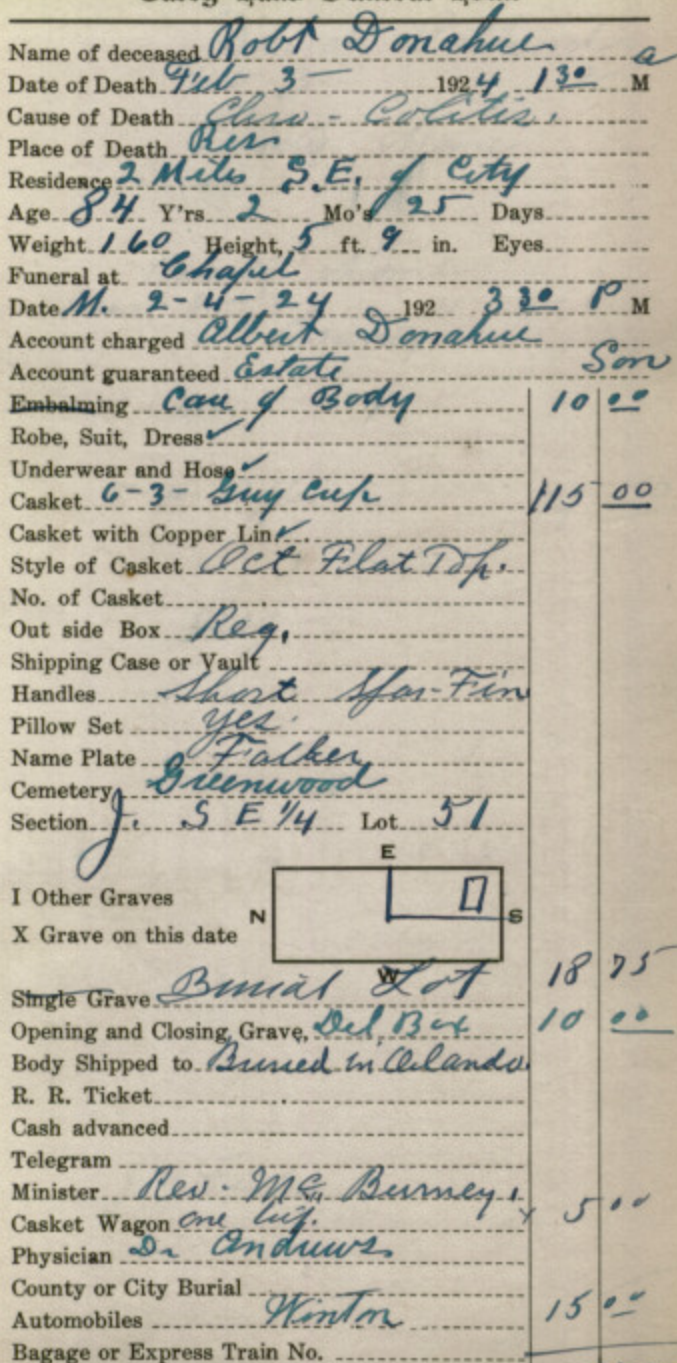 Name of deceased Robt Donahue
Date of Death Feb 3 - 1924 1 30 a M
Cause of Death - Colitis.
Place of Death Res
Residence 2 Miles S.E. of City
Age 84 Y'rs 2 Mo's 25 Days
Weight 160 Height, 5 ft. 9 in. Eyes
Funeral at Chapel
Date M. 2-4-24 192 3 30 P M
Account charged Albert Donahue
Account guaranteed Estate Son
Embalming Care of Body 10 00
Robe, Suit, Dress ✓
Underwear and Hose ✓
Casket 6-3- 115 00
Casket with Copper Lin ✓
Style of Casket Oct Flat Top.
No. of Casket
Out side Box Reg.
Shipping Case or Vault
Handles Short
Pillow Set yes.
Name Plate Father
Cemetery Greenwood
Section J. S E 1/4 Lot 51
E
I Other Graves
N S
X Grave on this date
W
Single Grave Burial Lot 18 75
Opening and Closing Grave, Del Box 10 00
Body Shipped to Buried in Orlando
R. R. Ticket
Cash advanced
Telegram
Minister Rev. Mc Burney.
Casket Wagon one 5 00
Physician Dr Andrews
County or City Burial
Automobiles Winton 15 00
Bagage or Express Train No.